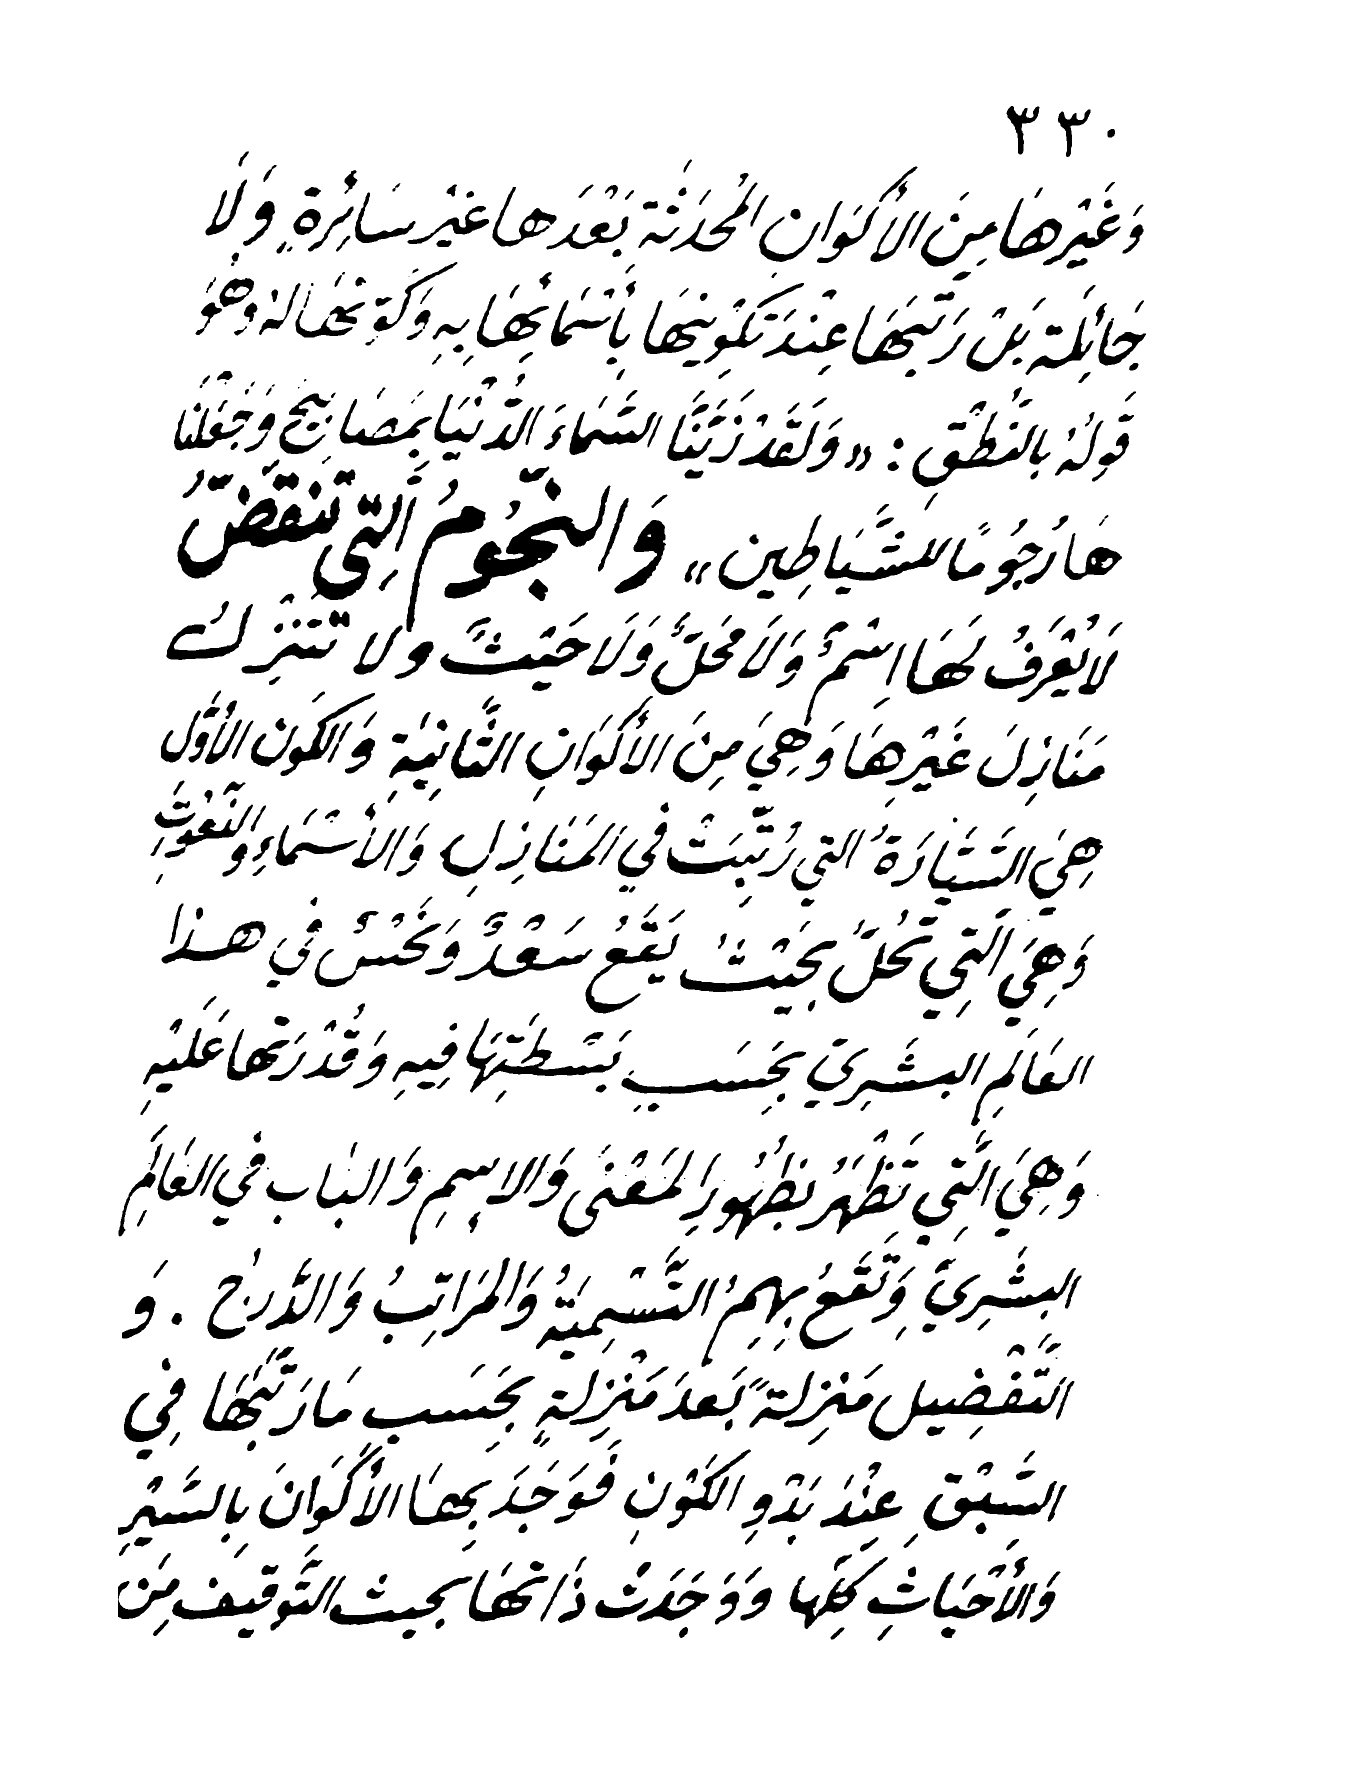 ٣٣٠
وَغَيْرِهَا مِنَ الأَكْوَانِ المُحْدَثَة بَعْدَها غَيْر سَائِرةٍ وَلَا
جَائِلَة بَلْ رَتَّبَهَا عِنْدَ تَكْوِينِهَا بِأَسْمَائِهَا بِهِ وَكَوَّنَهَا لَهُ وَهُوَ
قَولُهُ بالنُطْقِ : «وَلَقَدْ زَيَّنَّا السَّمَاءَ الدُّنْيَا بِمَصَابِيحَ وَجَعَلْنَا
هَا رُجُومًا للشَّيَاطِين» وَالنجُّومُ الَّتِي تَنقَضُّ
لَا يُعْرَفُ لَهَا اِسْمٌ وَلَا مَحَلٌّ وَلَا حَيْثٌ ولا تَتَنِزلُ
مَنَازِلَ غَيْرِهَا وَهِيَ مِنَ الأَكْوَانِ الثَّانِيَةِ وَالكَوْن الأَوَّل
هِيَ السَّيَّارَةُ التي رُتِّبَتْ فِي المَنَازِلِ وَالأَسْمَاءِ وَالنُّعُوتِ
وَهِيَ الَّتِي تَحُلُّ بِحَيْثُ يَقَعُ سَعْدٌ وَنَحْسٌ فِي هـذا
العَالَمِ البـشَرِيّ بِحَسَبِ بَسْطَتِهَا فِيهِ وَقُدْرَتِها عَلَيْهِ
وَهِيَ الَّتِي تَظْهَرُ بظُهُورِ المَعْنَى وَالاسِمِ وَالبَاب فِي العَالَمِ
البشَرِيِّ وَتَقَعُ بِهِمُ التَّسْمِيَةُ وَالمَرَاتِبُ وَالدَّرَجُ . وَ
التَّفْضِيل مَنْزِلةً بَعدَ مَنْزِلةٍ بِحَسَبِ مَا رَتَّبَهَا فِي
السَّبْقِ عِنْدَ بَدْوِ الكَوْنِ فَوَجَدَ بِهَا الأَكْوَانَ بِالسَّيْرِ
وَالأَحْيَاثِ كِلِّهَا وَوَجَدَتْ ذَاتهَا بحيث التَّوقِيف مِنَ